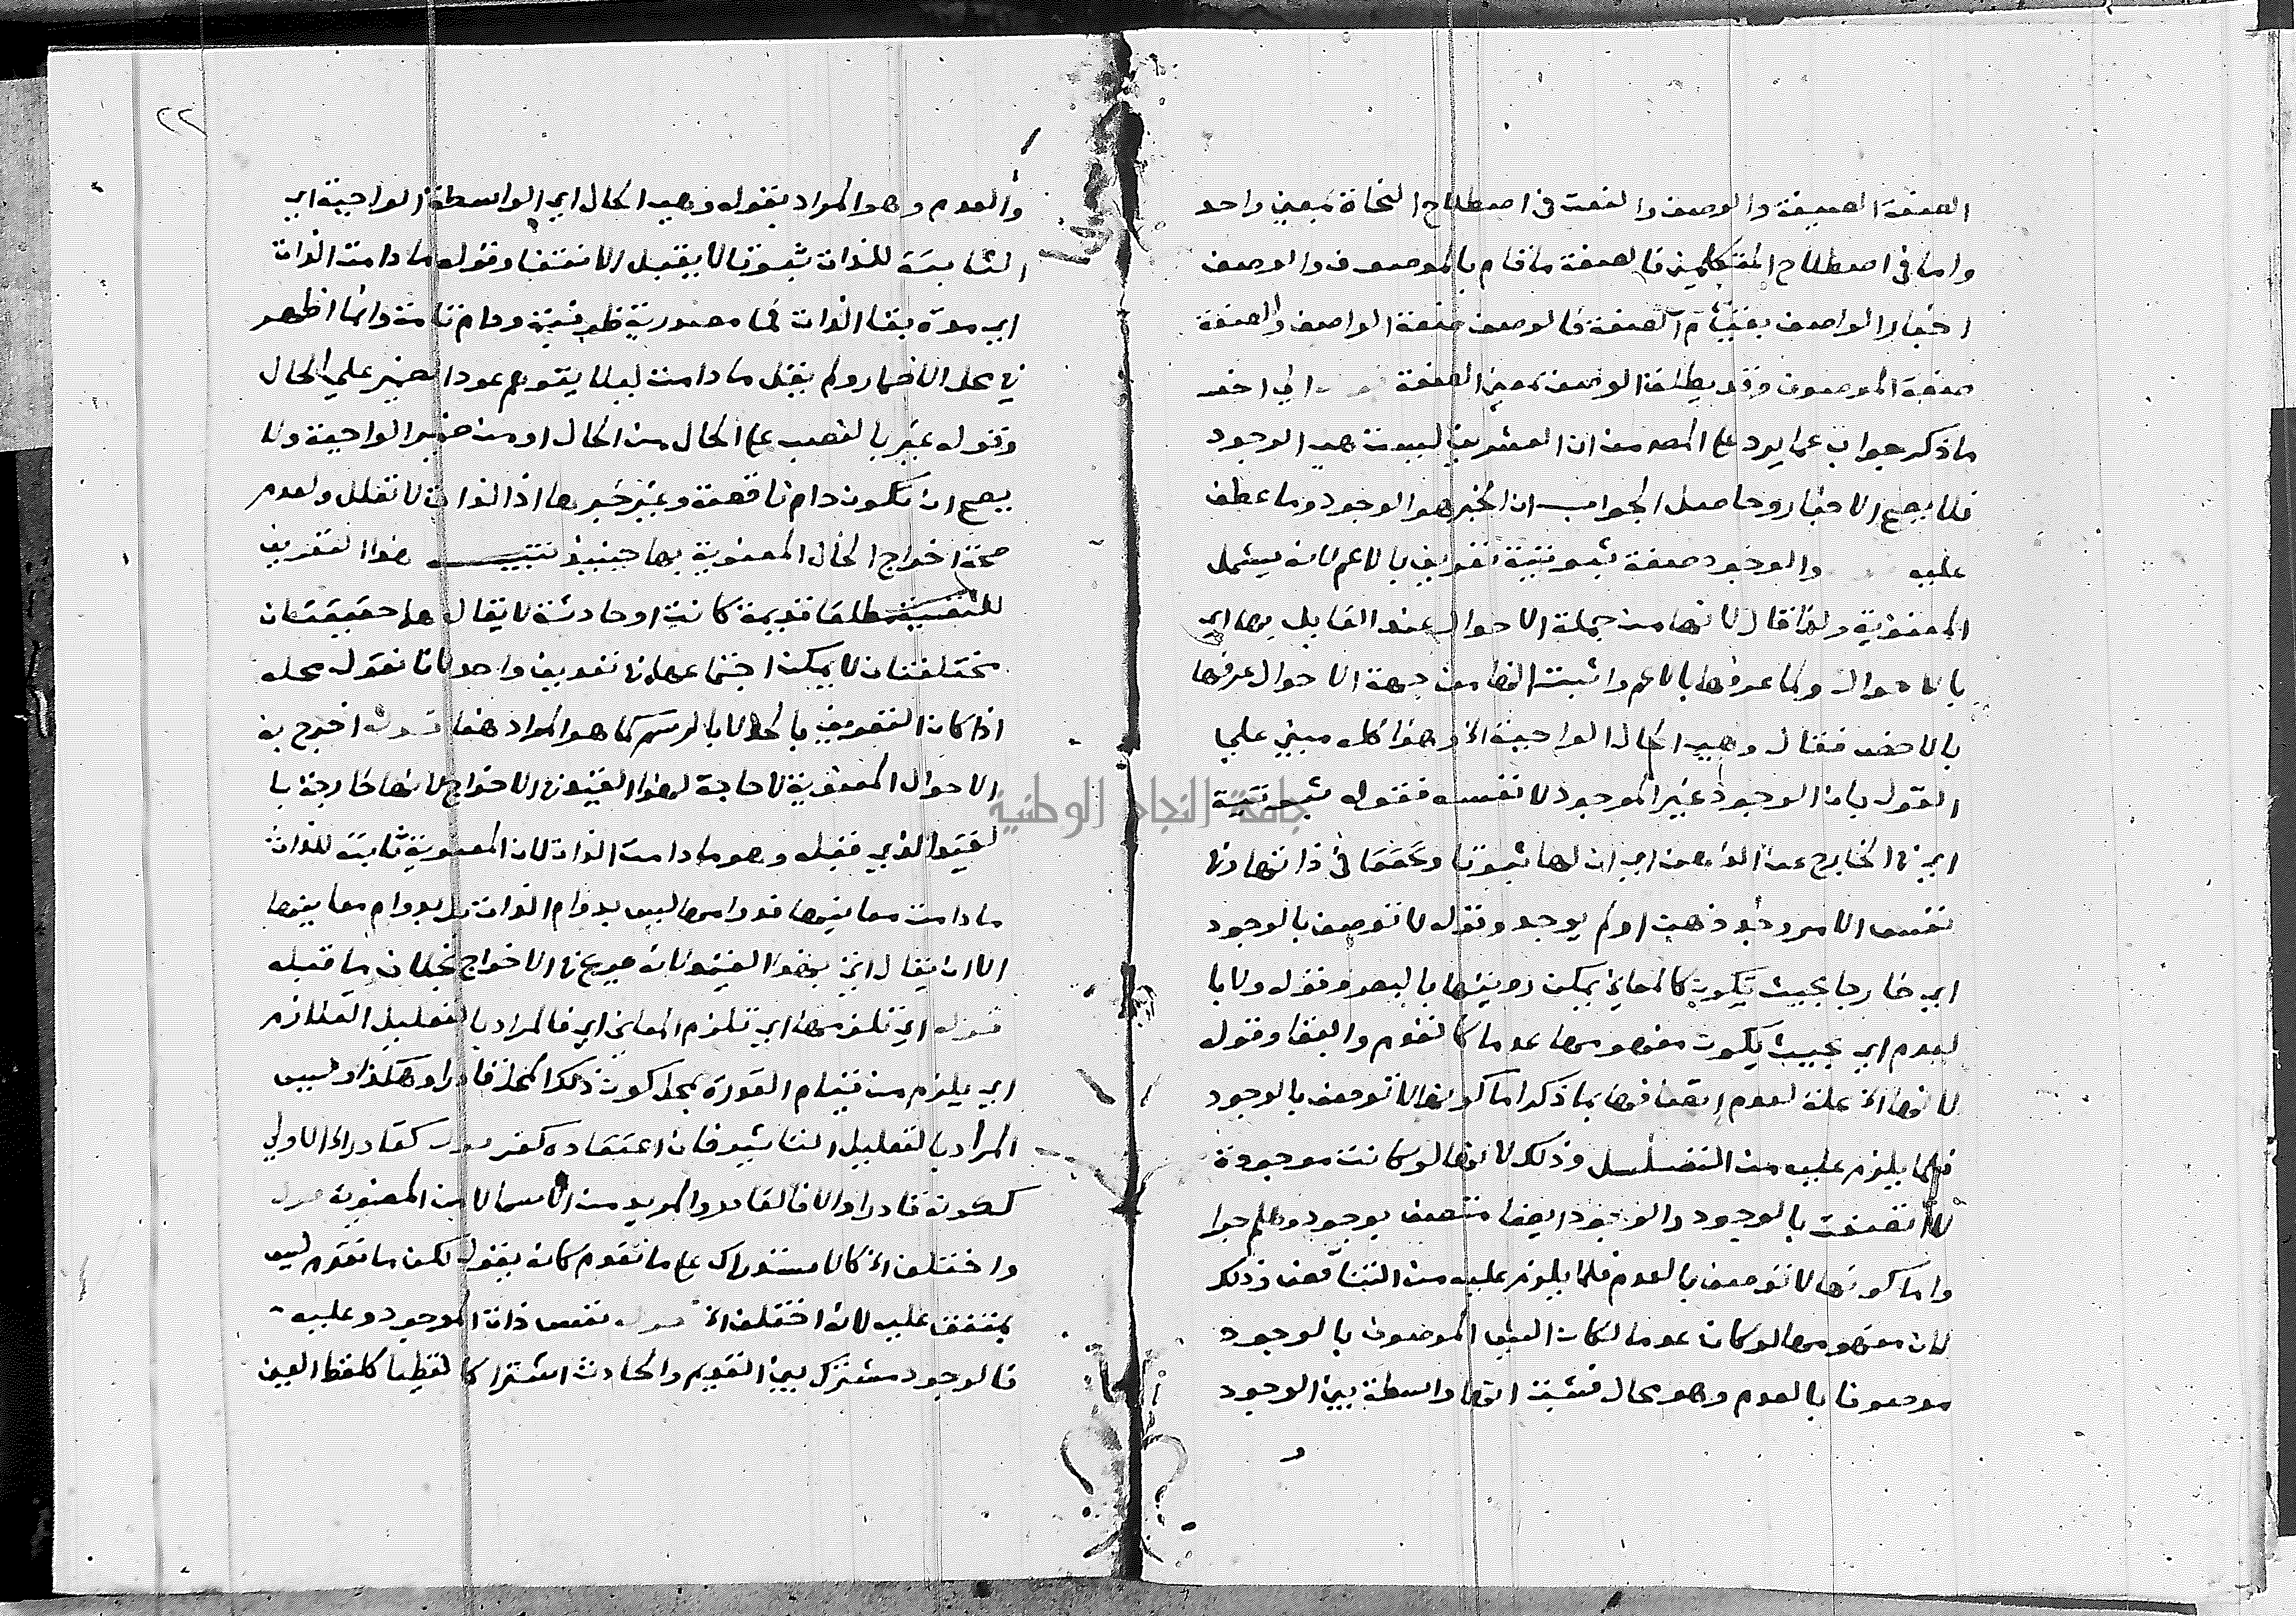 الصفة الصفة والوصف والنعت في اصطلاح النحاة بمعني واحد
واما في اصطلاح المتكلمين فالصفة ما قام بالموصوف والوصف
اخبار الواصف بقيام الصفة فالوصف صفة الواصف والصفة
صفة الموصوف وقد يطلق الوصف بمعني الصفة الي اخر
ما ذكر جواب عما يرد ع المص من ان العشرين ليست هي الوجود
فلا يصح الاخبار وحاصل الجواب ان الخبر هو الوجود وما عطف
عليه والوجود صفة ثبوتية تعريف بالاعم لانه يشمل
المعنوية ولذا قال لانها من جملة الاحوال عند القايل بها اي
بالاحوال ولما عرفها بالاعم واثبت انها من جهة الاحوال عرفها
بالاخص فقال وهي الحال الواجبة الخ وهذا كله مبني علي
القول بان الوجود غير الموجود لا نفسه فقوله ثبوتية
اي في الخارج عن الذهن اي ان لها ثبوتا وتحققا في ذاتها وفي
نفس الامر وجد ذهن او لم يوجد وقوله لا توصف بالوجود
اي خارجا بحيث تكون كالمعاني يمكن رويتها بالبصر وقوله ولا با
لعدم اي بحيث يكون مفهومها عدما كالقدم والبقا وقوله
لانها الخ علة لعدم اتصافها بما ذكر اما كونها لا توصف بالوجود
فلما يلزم عليه من التسلسل وذلك لانها لو كانت موجودة
لاتصفت بالوجود والوجود ايضا متصف بوجود وهلم جرا
واما كونها لا توصف بالعدم فلما يلزم عليه من التناقض وذلك
لان مفهومها لو كان عدما لكان الشي الموصوف بالوجود
موصوفا بالعدم وهو محال فثبت انها واسطة بين الوجود
و
٢٢
والعدم وهو المراد بقوله وهي الحال اي الواسطة الواجبة اي
الثابتة للذات ثبوتا لا يقبل الانتفا وقوله ما دامت الذات
اي مدة بقا الذات فما مصدرية ظرفية ودام تامة وانما اظهر
في محل الاضمار ولم يقل ما دامت ليلا يتوهم عود الضمير علي الحال
وقوله غير بالنصب ع الحال من الحال او من ضمير الواجبة ولا
يصح ان تكون دام ناقصة وغير خبرها اذ الذات لا تعلل ولعدم
صحة اخراج الحال المعنوية بها حينيذ تنبيه هذا التعريف
للنفسية مطلقا قديمة كانت او حادثة لا يقال هما حقيقتان
مختلفتان لا يمكن اجتماعهما في تعريف واحد لانا نقول محله
اذا كان التعريف بالحد لا بالرسم كما هو المراد هنا قوله اخرج به
الاحوال المعنوية لا حاجة لهذا القيد في الاخراج لانها خارجة با
لقيد الذي قبله وهو ما دامت الذات لان المعنوية ثابتة للذات
ما دامت معانيها فدوامها ليس بدوام الذات بل بدوام معانيها
الا ان يقال اتي بهذا القيد لانه صريح في الاخراج بخلاف ما قبله
قوله اي تلزمها اي تلزم المعاني اي فالمراد بالتعليل التلازم
اي يلزم من قيام القدرة بمحل كون ذلك المحل قادرا وهكذا وليس
المراد بالتعليل التاثير فان اعتقاده كفر قوله كقادرا الخ الاولي
ككونه قادرا والا فالقادر والمريد من الاسما لا من المعنوية قوله
واختلف الخ كالاستدراك ع ما تقدم كانه يقول لكن ما تقدم ليس
بمتفق عليه لانه اختلف الخ قوله نفس ذات الموجود وعليه
فالوجود مشترك بين القديم والحادث اشتراكا لفظيا كلفظ العين
جامعة النجاح الوطنية